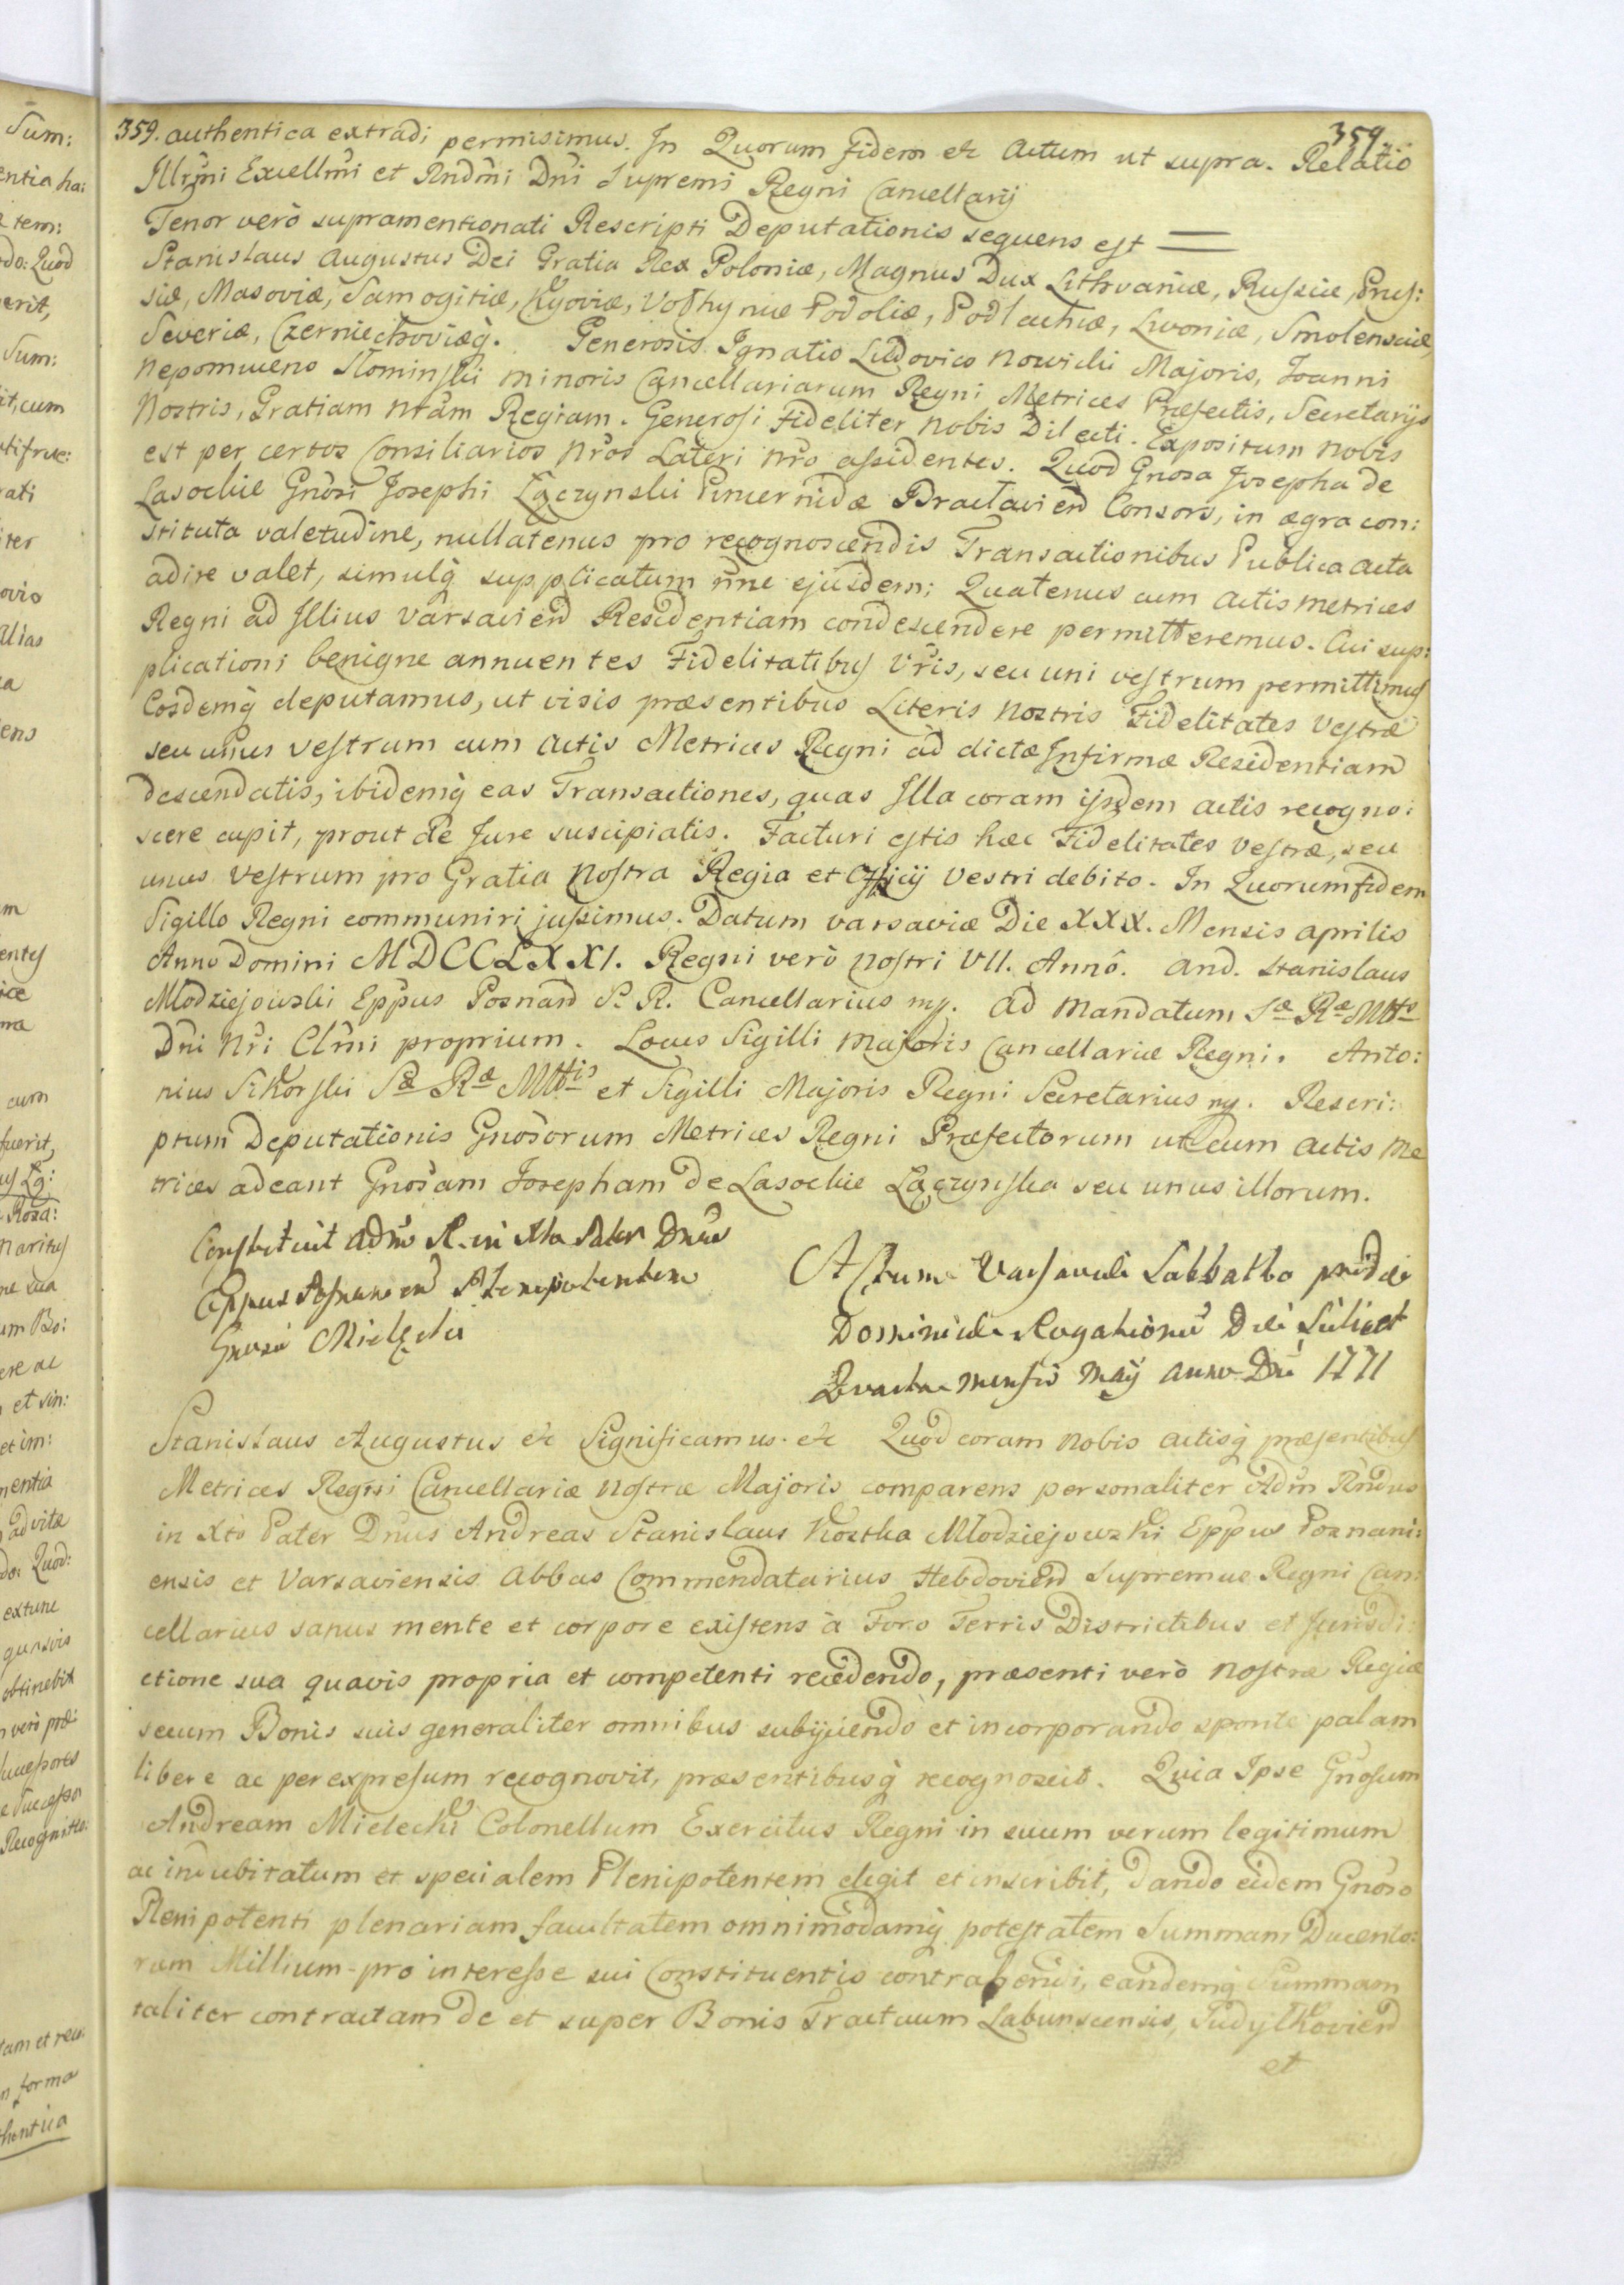 Sum:
entia ha:
tem:
do: Quod
erit,
Sum:
it, cum
tifruc:
rati
iter
ovio
alias
ia
ens
m
entes
ice
ma
cum
fuerit,
us Lg:
Roza:
maritus
ne sua
um Bo:
ere ac
et sin:
et im:
mentia
ad vitæ
do: Quod:
extunc
quasvis
obtinebit
verò præ:
Successores
e Successor
Recognitio:
tam et reco:
n forma
thentica
359. authentica extradi permisimus. In Quorum fidem etc Actum ut supra. Relatio 359.
Illrm̃i Excellm̃i et Rndm̃i Dñi Supremi Regni Cancellarij
Tenor verò supramentionati Rescripti Deputationis sequens est =
Stanislaus Augustus Dei Gratia Rex Poloniæ, Magnus Dux Lithvaniæ, Russiæ, Prus:
siæ, Masoviæ, Samogitiæ, Kyoviæ, Volhyniæ Podoliæ, Podlachiæ, Livoniæ, Smolensciæ,
Severiæ, Czerniechoviæq̃. Generosis Ignatio Ludovico Nowicki Majoris, Joanni
Nepomuceno Słominski minoris Cancellariarum Regni Metrices Præfectis, Secretarijs
Nostris, Gratiam Nrãm Regiam. Generosi Fideliter Nobis Dilecti. Expositum Nobis
est per certos Consiliarios Nrõs Lateri Nrõ assidentes. Quod Gnosa Josepha de
Lasockie Gnosi Josephi Łączynski Pincernidæ Braclavieñ Consors, in ægra con:
stituta valetudine, nullatenus pro recognoscendis Transactionibus Publica Acta
adire valet, simulq̃ supplicatum nñe ejusdem; Quatenus cum Actis Metrices
Regni ad Illius Varsavieñ Residentiam condescendere permitteremus. Cui sup:
plicationi benigne annuentes Fidelitatibus Vrĩs, seu uni vestrum permittimus
Eosdemq̃ deputamus, ut visis præsentibus Literis Nostris Fidelitates Vestræ
seu unus Vestrum cum Actis Metrices Regni ad dictæ Infirmæ Residentiam
descendatis, ibidemq̃ eas Transactiones, quas Illa coram ijsdem Actis recogno:
scere cupit, prout de Jure suscipiatis. Facturi estis hæc Fidelitates Vestræ, seu
unus Vestrum pro Gratia Nostra Regia et Officij Vestri debito. In Quorum fidem
Sigillo Regni communiri jussimus. Datum Varsaviæ Die XXX. Mensis Aprilis
Anno Domini MDCCLXXI. Regni verò Nostri VII. Annô. And. Stanislaus
Młodziejowski Epp̃us Posnañ S. R. Cancellarius mp. Ad Mandatum Sæ Ræ Mttis
Dñi Nrĩ Clm̃i proprium. Locus Sigilli Majoris Cancellariæ Regni. Anto:
nius Sikorski Sæ Ræ Mttis et Sigilli Majoris Regni Secretarius mp. Rescri:
ptum Deputationis Gnosorum Metrices Regni Præfectorum ut cum Actis Me
trices adeant Gnosam Josepham de Lasockie Łączynska seu unus illorum.
Constituit Adm̃ R. in Xto Pater Dñus
Epp̃us Posnanieñ Plenipotentem
Gnosũ Mielęcki
Actum Varsaviæ Sabbatho pridie
Dominicæ Rogationũ Die Scilicet
Quarta Mensis Maij Anno Dni 1771
Stanislaus Augustus etc Significamus. etc Quod coram Nobis Actisq̃ præsentibus
Metrices Regni Cancellariæ Nostræ Majoris comparens personaliter Adm̃ Rndus
in Xtõ Pater Dñus Andreas Stanislaus Kostka Młodziejowski Epp̃us Poznani:
ensis et Varsaviensis Abbas Commendatarius Hebdovieñ Supremus Regni Can:
cellarius sanus mente et corpore existens à Foro Terris Districtibus et Jurisdi:
ctione sua quavis propria et competenti recedendo, præsenti verò Nostræ Regiæ
secum Bonis suis generaliter omnibus subijciendo et incorporando sponte palam
libere ac per expressum recognovit, præsentibusq̃ recognoscit. Quia Ipse Gnosum
Andream Mielecki Colonellum Exercitus Regni in suum verum legitimum
ac indubitatum et specialem Plenipotentem elegit et inscribit, dando eidem Gnoso
Plenipotenti plenariam facultatem omnimodamq̃ potestatem Summam Ducento:
rum Millium pro interesse sui Constituentis contrahendi, eandemq̃ Summam
taliter contractam de et super Bonis Tractuum Labunscensis, Sudyłkovieñ
et